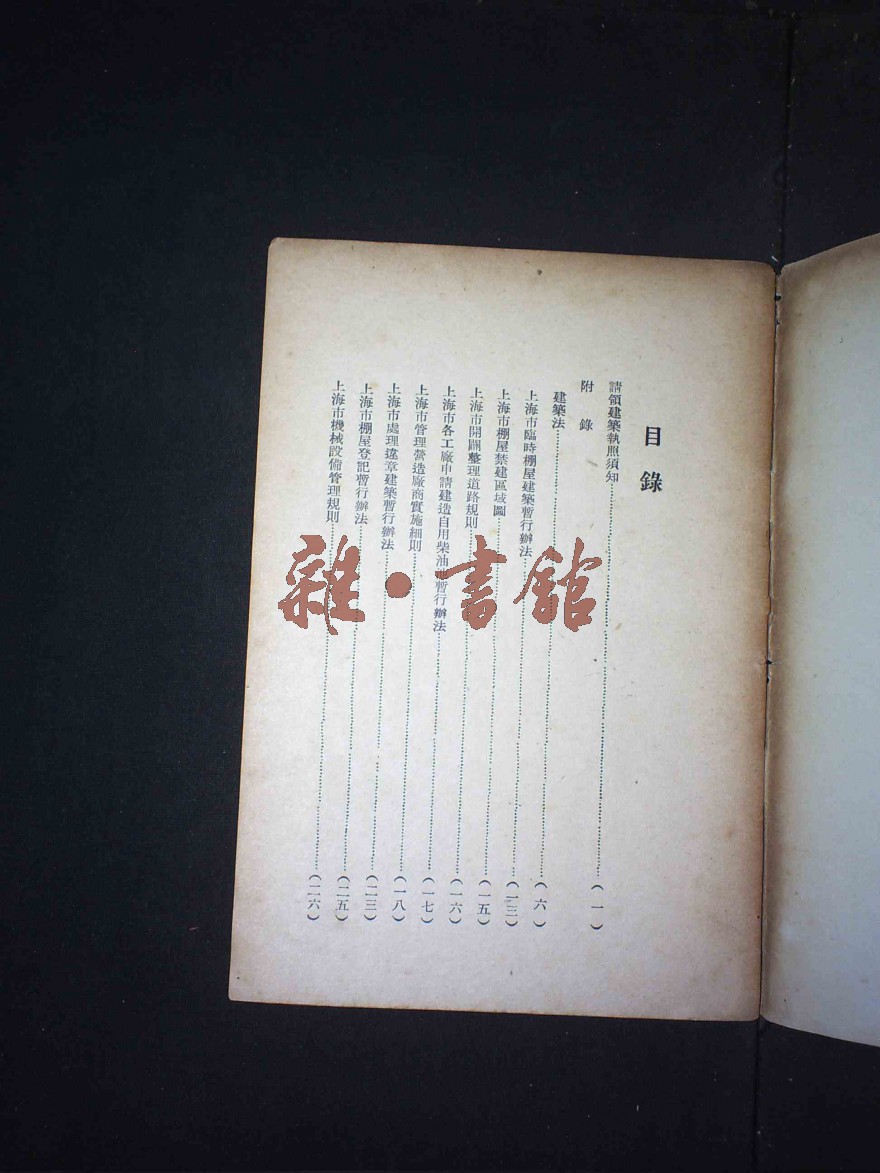 目錄
請領建築執照須知……(一)
附錄
建築法……(六)
上海市臨時棚屋建築暫行辦法……(一三)
上海市棚屋禁建區域圖……(一五)
上海市開闢整理道路規則……(一六)
上海市各工廠申請建造自用柴油暫行辦法……(一七)
上海市管理營造廠商實施細則……(一八)
上海市處理違章建築暫行辦法……(二三)
上海市棚屋登記暫行辦法……(二五)
上海市機械設備管理規則……(二六)
雜·書館